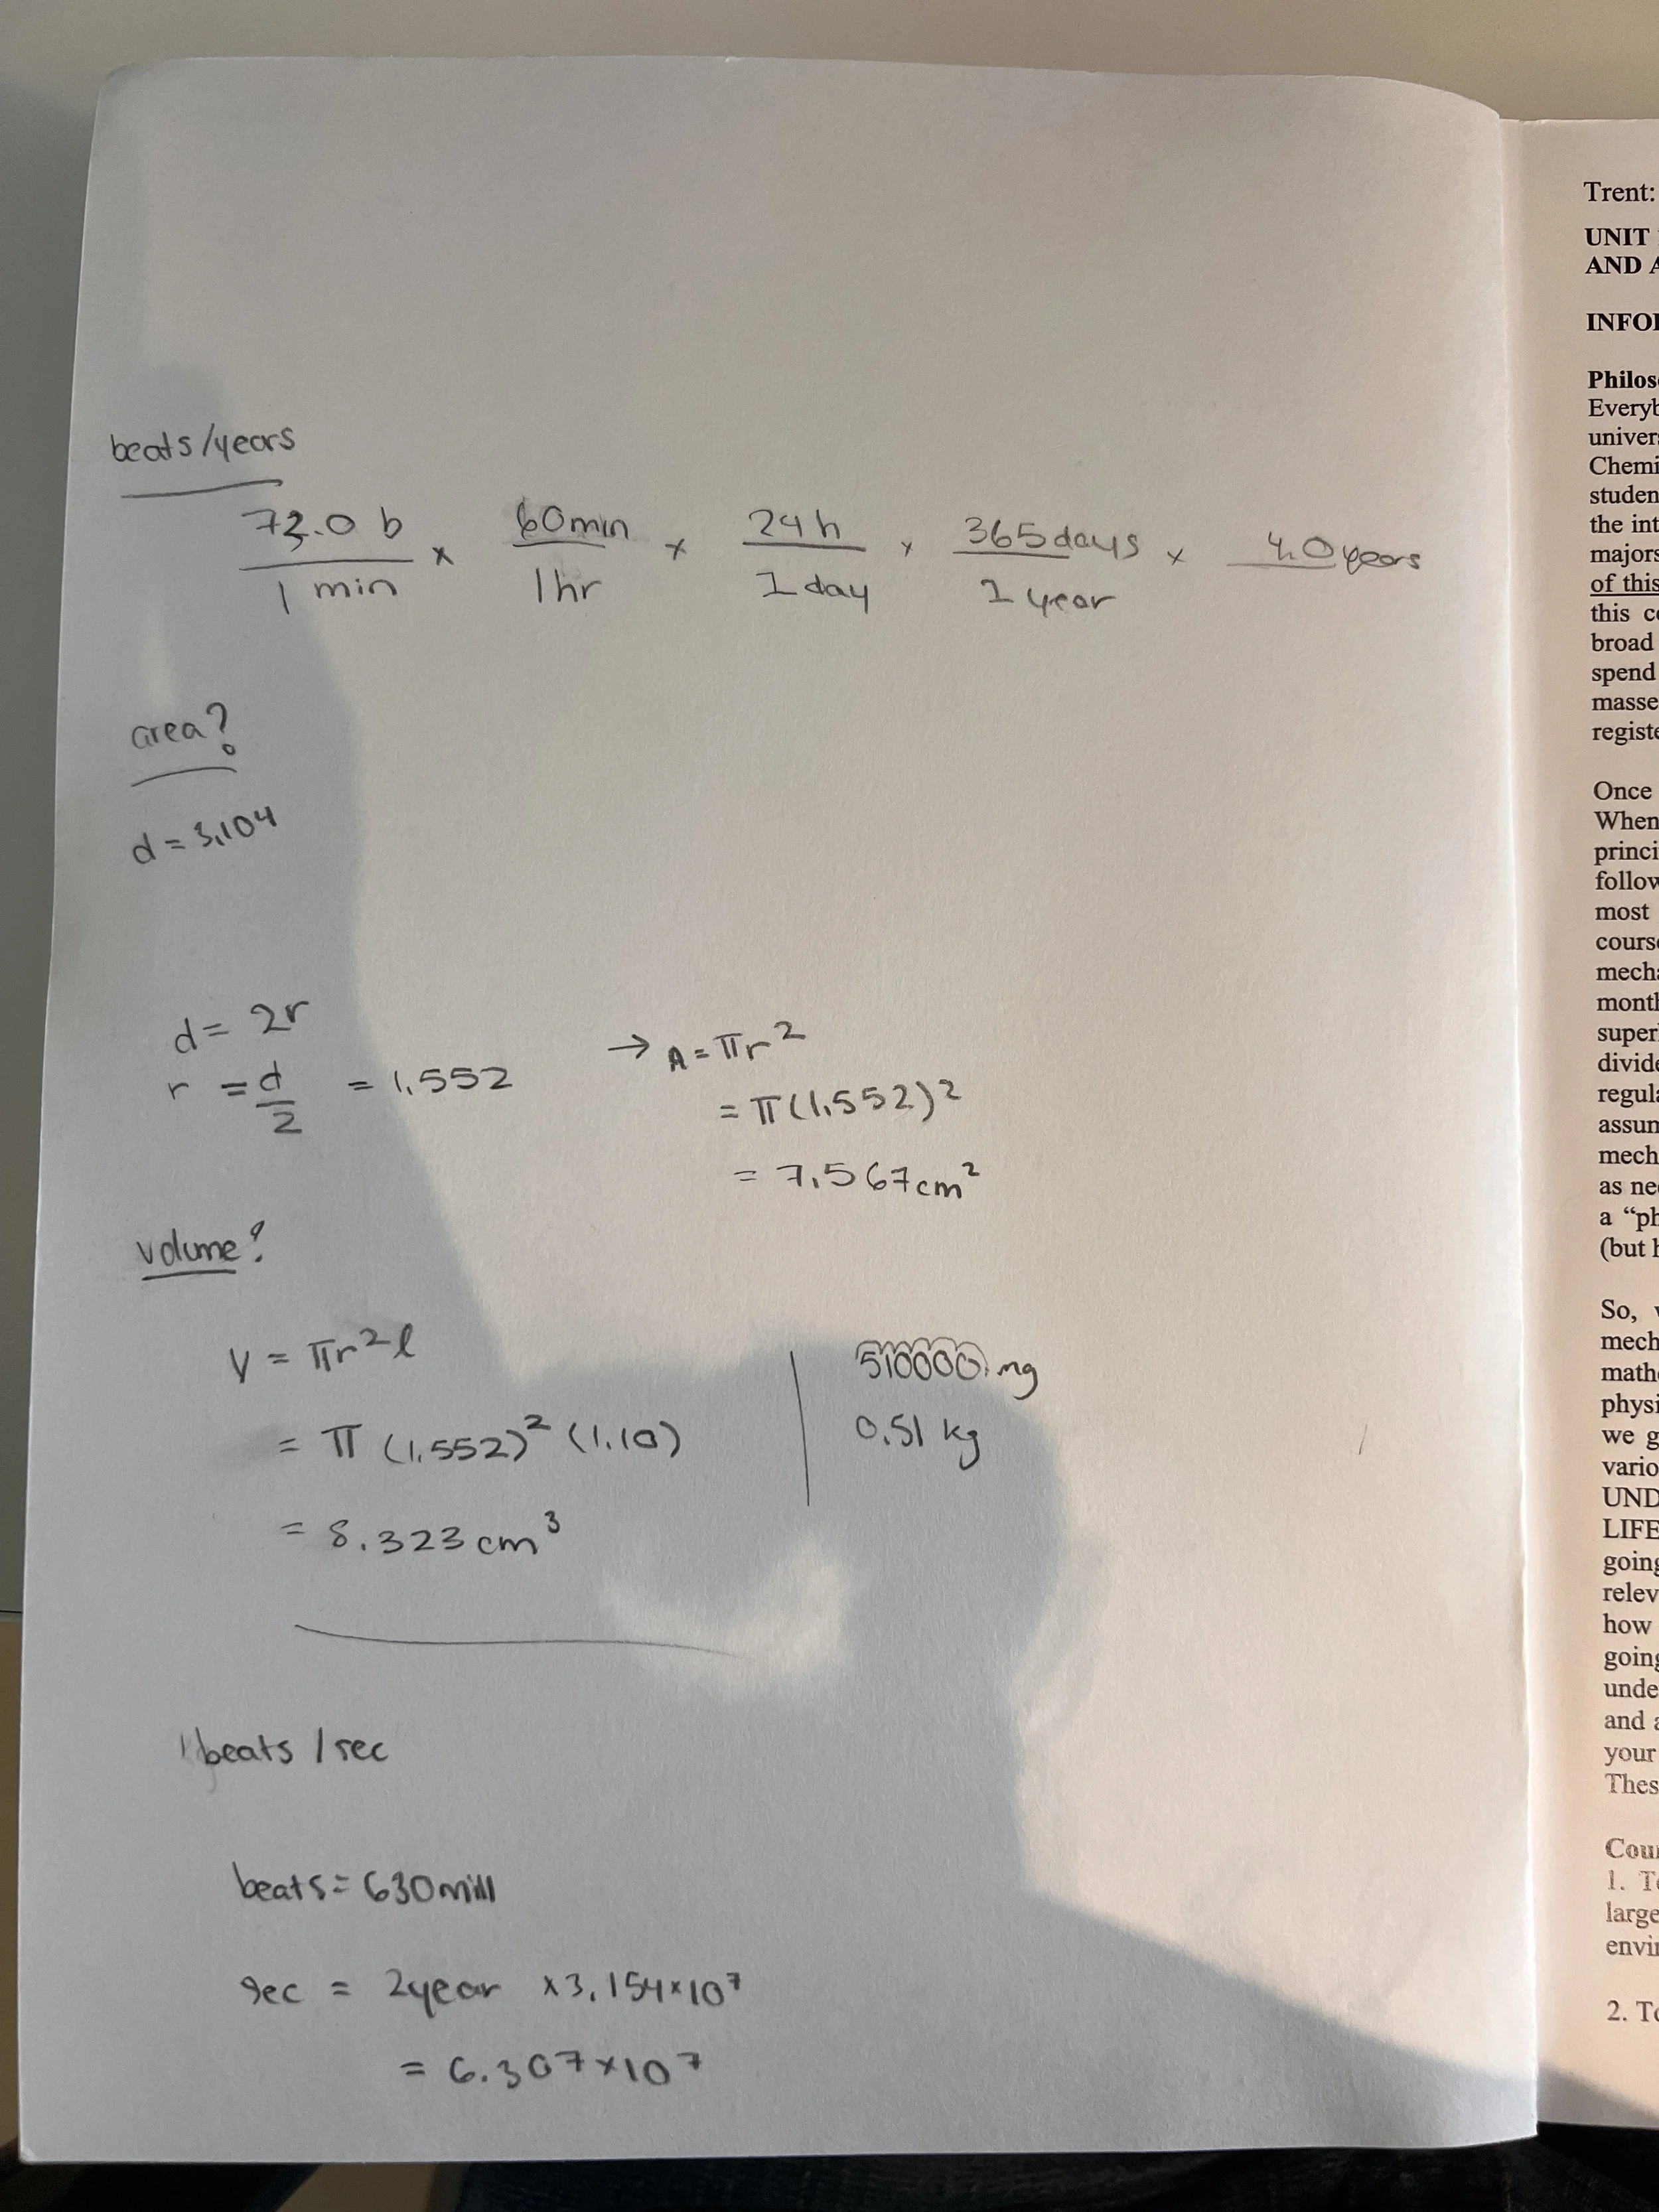 beats/years
72.0 b / 1 min × 60min / 1hr × 24h / 1 day × 365days / 1 year × 4.0 years
area?
d = 3.104
d = 2r
r = d/2 = 1.552
→ A = πr²
= π(1.552)²
= 7.567cm²
volume?
V = πr²l
= π (1.552)² (1.10)
= 8.323 cm³
510000 mg
0.51 kg
beats / sec
beats = 630mill
sec = 2year × 3.154×10⁷
= 6.307×10⁷
Trent:
UNIT
AND A
INFO
Philos
Everyb
univers
Chemi
studen
the int
majors
of this
this co
broad
spend
masse
registe
Once
When
princi
follow
most
course
mecha
month
super
divide
regula
assum
mech
as nee
a “ph
(but h
So, w
mech
mathe
physi
we g
vario
UND
LIFE
going
relev
how
going
unde
and a
your
Thes
Cour
1. To
large
envir
2. To